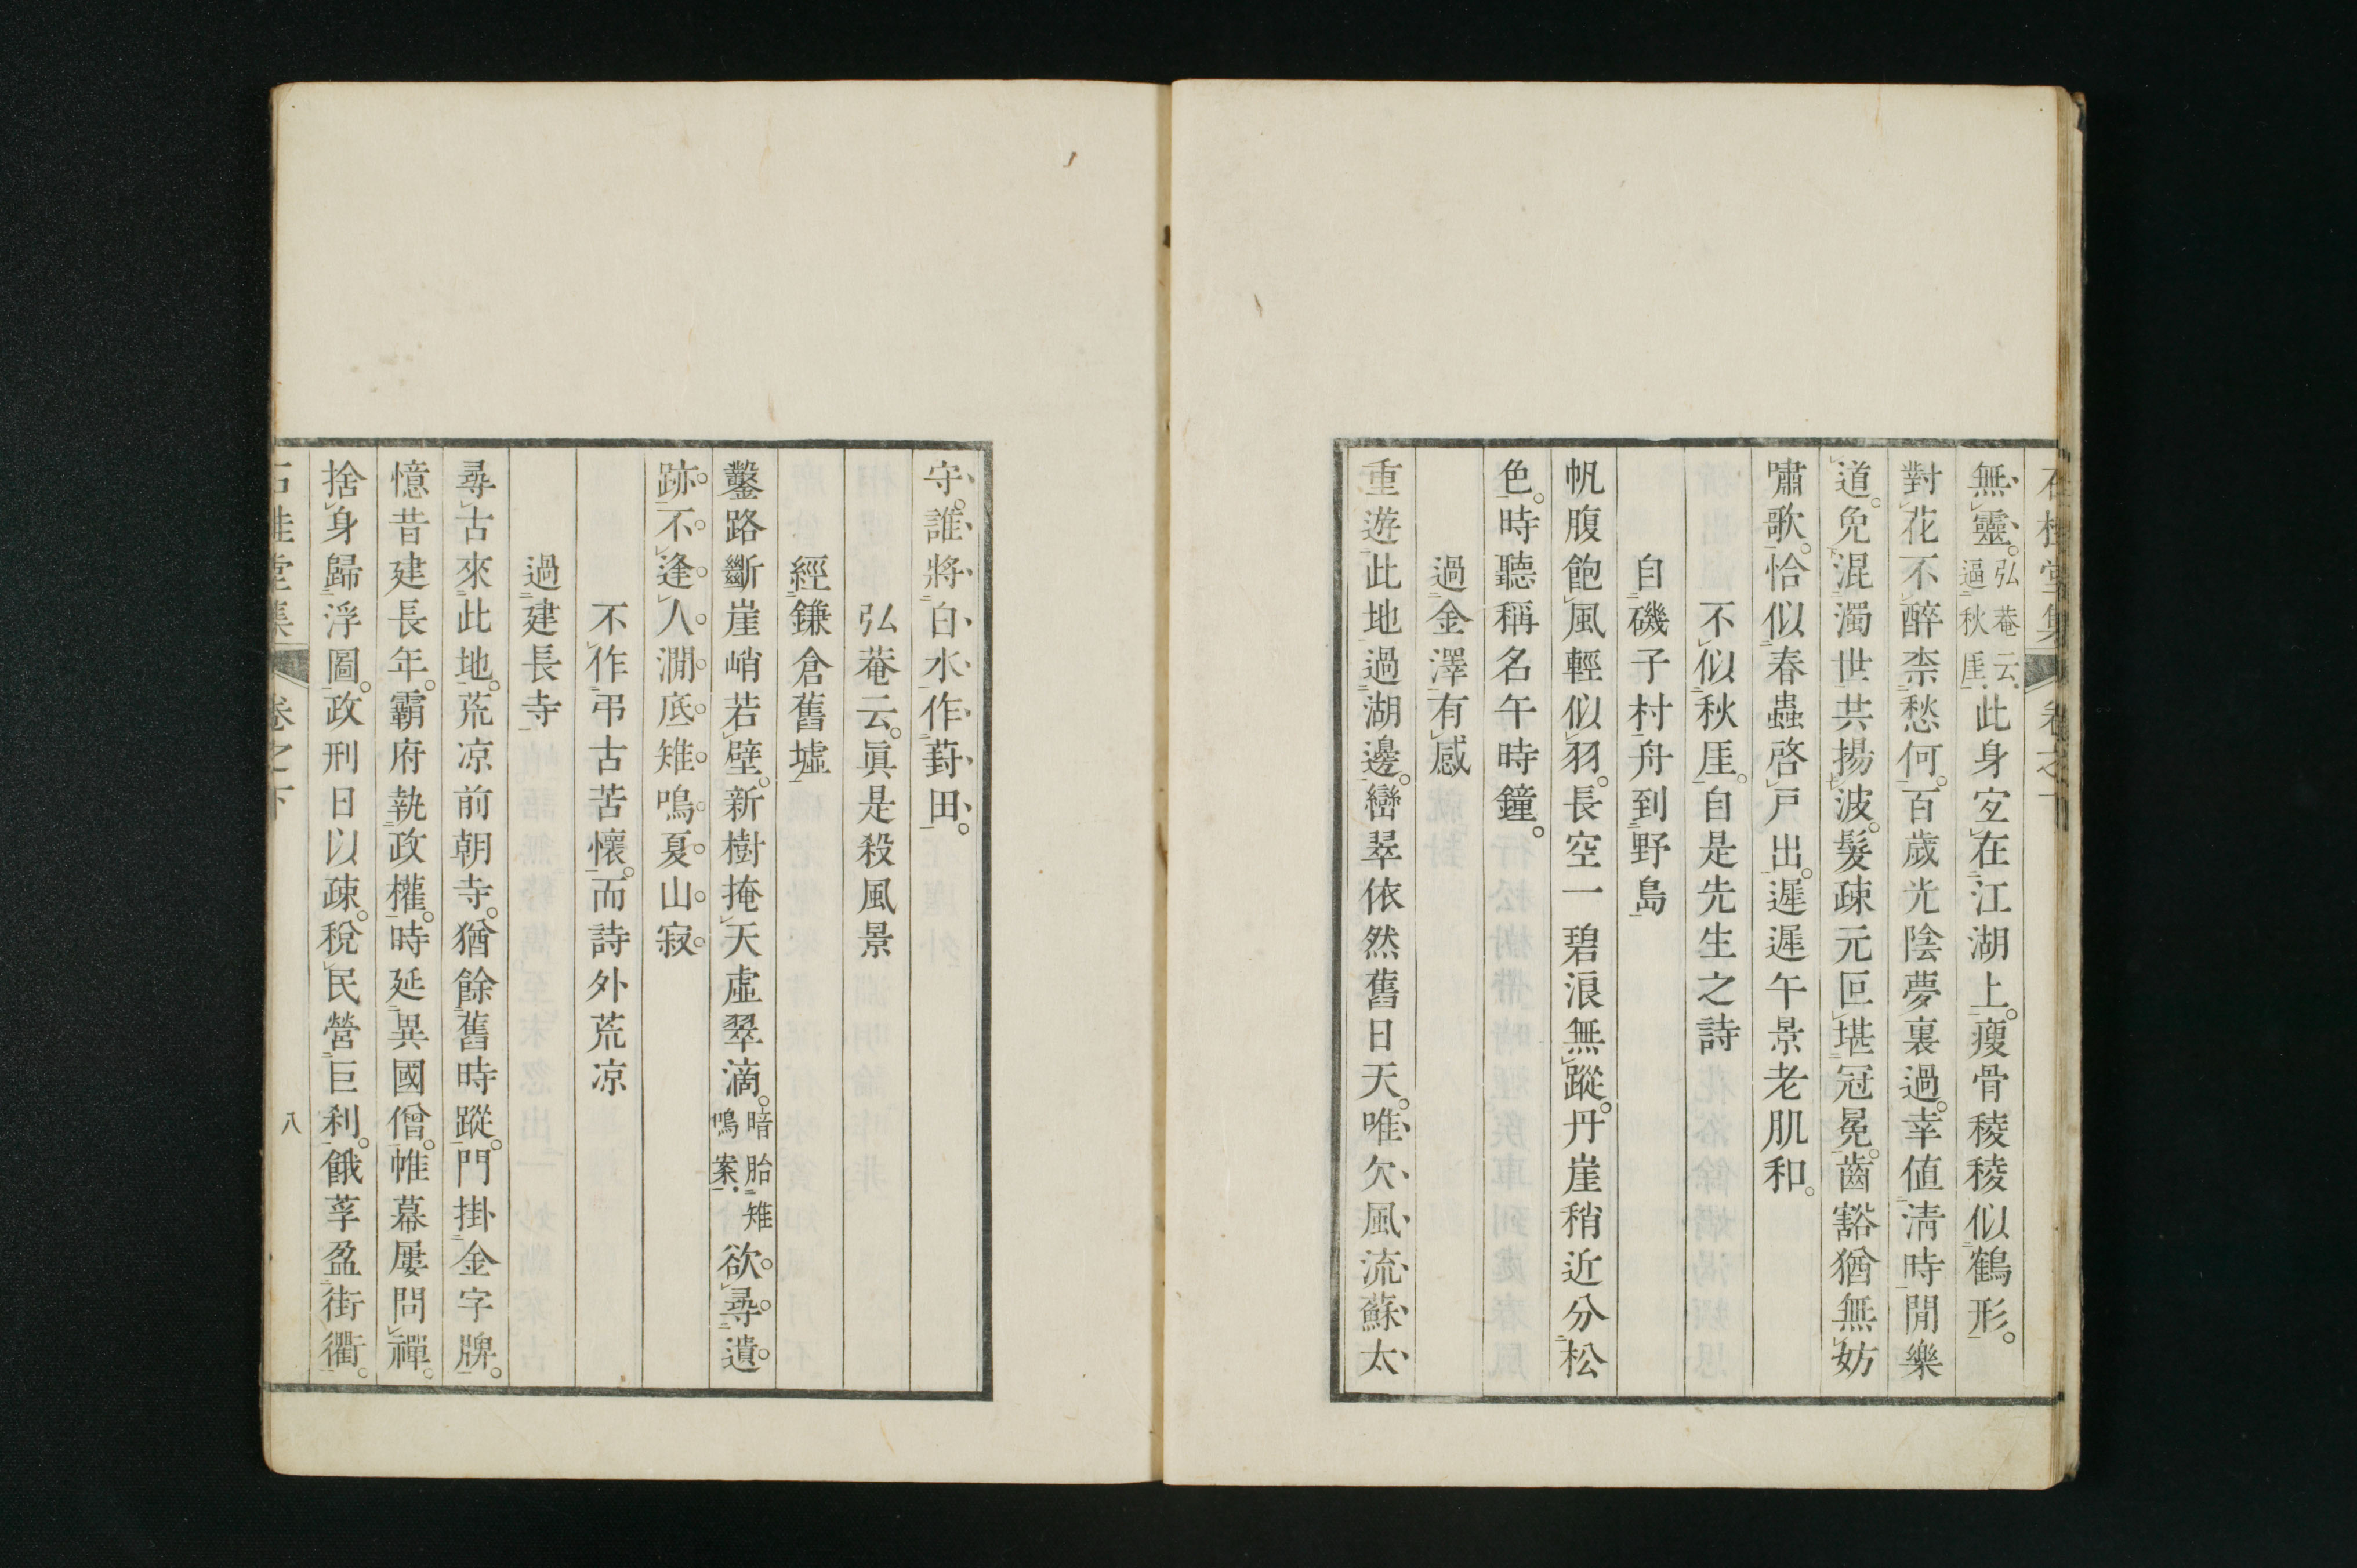 無靈。弘菴云逼秋厓此身㝎在江湖上。瘦骨稜稜似鶴形。
對花不醉柰愁何。百歲光陰夢裏過。幸値淸時閒樂
道。免混濁世共揚波。髮疎元叵堪冠冕。齒豁猶無妨
嘯歌。恰似春蟲啓戶出。遲遲午景老肌和。
不似秋厓。自是先生之詩
自磯子村舟到野島
帆腹飽風輕似羽。長空一碧浪無蹤。丹崖稍近分松
色。時聽稱名午時鐘。
過金澤有感
重遊此地過湖邊。巒翠依然舊日天。唯欠風流蘇太
守。誰將白水作葑田。
弘菴云。眞是殺風景
經鎌倉舊墟
鑿路斷崖峭若壁。新樹掩天虛翠滴。暗胎雉鳴案欲尋遺
跡不逢人。澗底雉鳴夏山寂。
不作弔古苦懷。而詩外荒凉
過建長寺
尋古來此地。荒凉前朝寺。猶餘舊時蹤。門掛金字牌。
憶昔建長年。霸府執政權。時延異國僧。帷幕屢問禪。
捨身歸浮圖。政刑日以疎。稅民營巨利。餓莩盈街衢。
八